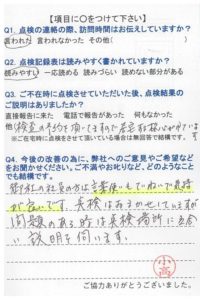 【項目に○をつけて下さい】
Q1. 点検の連絡の際、訪問時間はお伝えしていますか？
言われた 言われなかった その他( )
Q2. 点検記録表は読みやすく書かれていますか？
読みやすい 一応読める 読みづらい 読めない部分がある
Q3. ご不在時に点検させていただいた後、点検結果の
ご説明はありましたか？
直接報告に来た 電話で報告があった 何もなかった
他(
※ご在宅時に点検をさせて頂いている場合は無回答で結構です。
Q4. 今後の改善の為に、弊社へのご意見やご希望など
をお聞かせください。ご不満やお叱りなど、どのようなこと
でも結構です。
御社の社員の方は言葉使いもていねいで気持
が良いです。点検はおまかせしていますが
問題のある時は点検場所に立会い
説明を伺います。
小高
ご協力ありがとうございました。